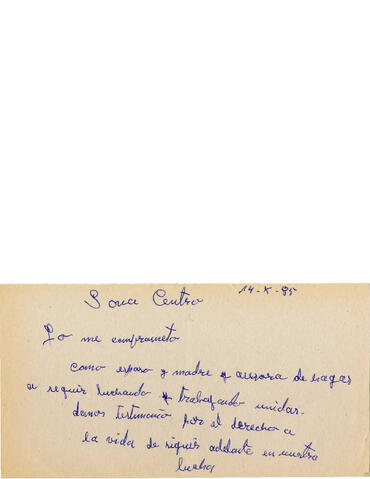 14-X-85
Sona Centro
Yo me comprometo
como esposa y madre y asesora de hogar
a seguir luchando y trabajando unidas.
damos testimonio por el derecho a
la vida de siguir adelante en nuestra
lucha